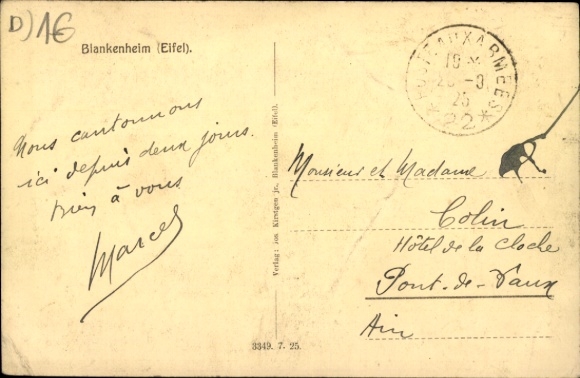 D) 1€
Blankenheim (Eifel).
Nous cantonnons
ici depuis deux jours.
Bien à vous
Marcel
Verlag: Jos Kirstgen jr., Blankenheim (Eifel).
3349. 7. 25.
POSTE AUX ARMÉES
18 *
26 - 9
25
* 22 *
Monsieur et Madame
Colin
Hôtel de la Cloche
Pont-de-Vaux
Ain